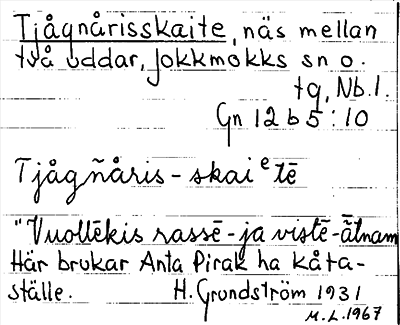 Tjågnårisskaite, näs mellan
två uddar, Jokkmokks sn o.
tg, Nb.l.
Gn 12 b 5 : 10
Tjågñåris - skaiᵉtē
"Vuollēkis rassē - ja vistē - ätnam
Här brukar Anta Pirak ha kåta-
ställe. H. Grundström 1931
M.L. 1967